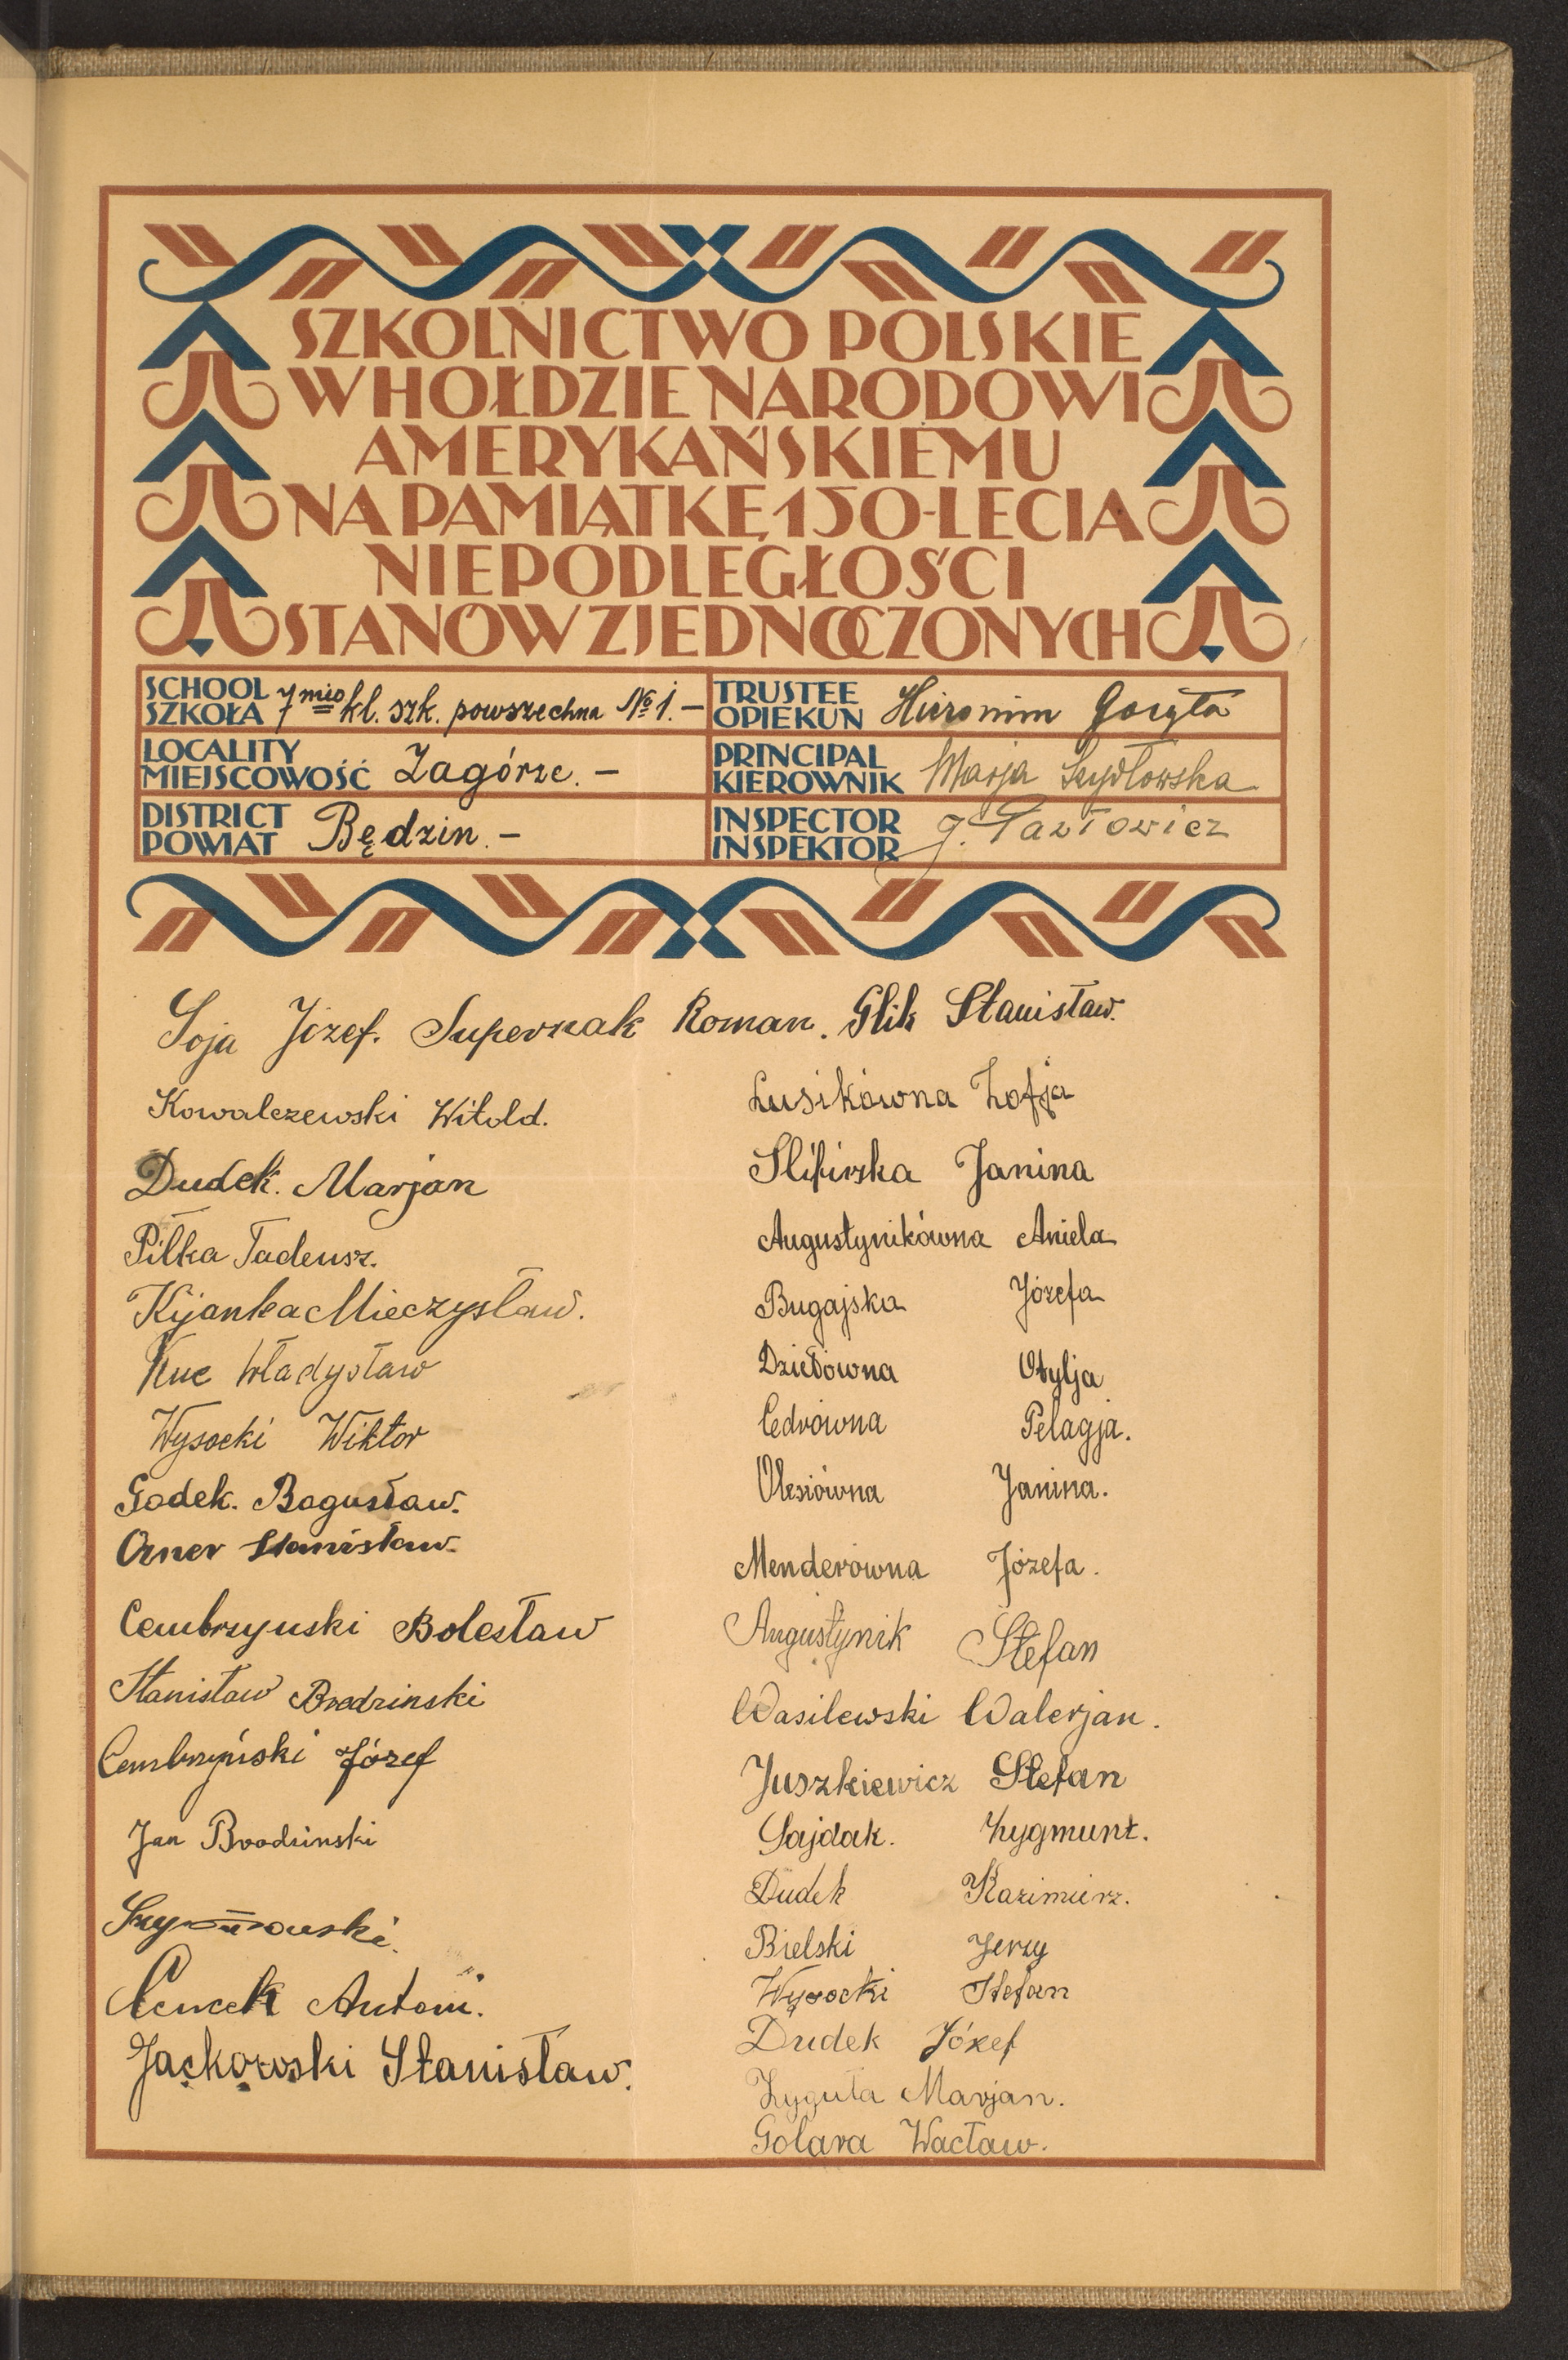 SZKOLNICTWO POLSKIE
W HOŁDZIE NARODOWI
AMERYKAŃSKIEMU
NA PAMIĄTKĘ 150-LECIA
NIEPODLEGŁOŚCI
STANÓW ZJEDNOCZONYCH
SCHOOL
SZKOŁA 7mio kl. szk. powszechna № 1. –
TRUSTEE
OPIEKUN Hieronim Goryta
LOCALITY
MIEJSCOWOŚĆ Zagórze. –
PRINCIPAL
KIEROWNIK Marja Szydłowska
DISTRICT
POWIAT Będzin. –
INSPECTOR
INSPEKTOR J. Pawłowicz
Soja Józef. Supernak Roman. Glik Stanisław.
Kowalczewski Witold.
Dudek. Marjan
Piłka Tadeusz.
Kijanka Mieczysław.
Kuc Władysław
Wysocki Wiktor
Godek. Bogusław.
Orner Stanisław.
Cembrzynski Bolesław
Stanisław Brodzinski
Cembrzyński Józef
Jan Brodzinski
Antoni.
Jackowski Stanisław.
Lusikówna Zofja
Janina
Augustynikówna Aniela
Bugajska Józefa
Otylja
Cedrówna Pelagja.
Olesiówna Janina.
Menderówna Józefa.
Augustynik Stefan
Wasilewski Walerjan.
Juszkiewicz Stefan
Sajdak. Zygmunt.
Dudek Kazimierz.
Bielski Jerzy
Wysocki Stefan
Dudek Józef
Zyguła Marjan.
Golara Wacław.